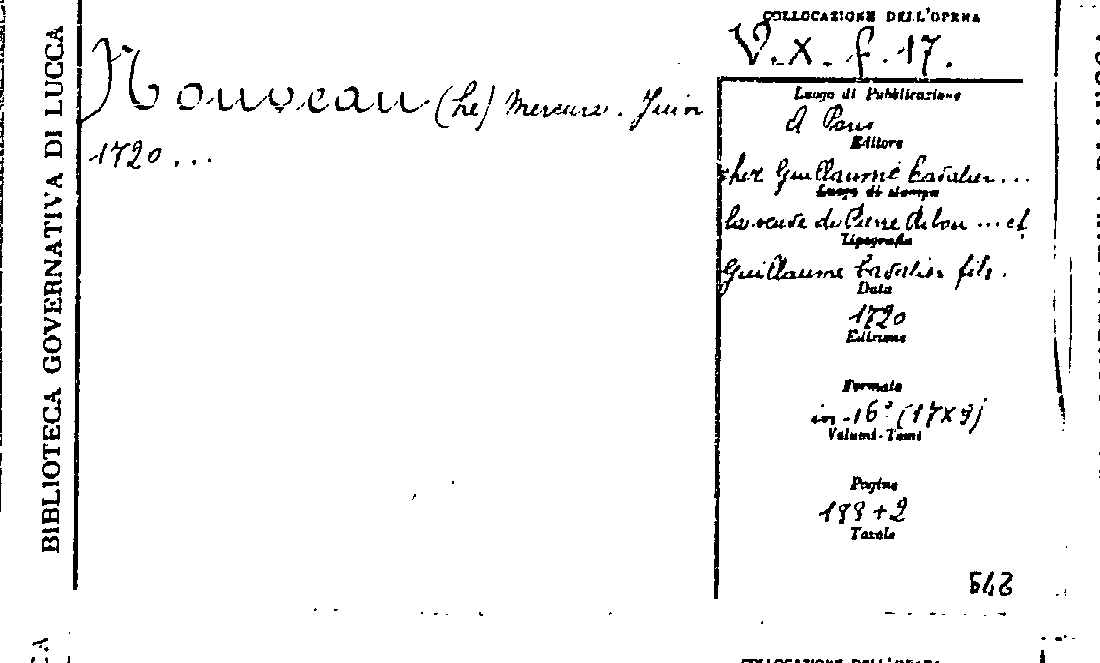 BIBLIOTECA GOVERNATIVA DI LUCCA
Nouveau (Le) Mercure. Juin
1720...
COLLOCAZIONE DELL'OPERA
V. X. f. 17.
Luogo di Pubblicazione
A Paris
Editore
chez Guillaume Cavalier ...
Luogo di stampa
la veuve de Pierre Ribou ... et
Tipografia
Guillaume Cavalier fils.
Data
1720
Edizione
Formato
in-16° (17x9)
Volumi-Tomi
Pagine
188+2
Tavole
542
COLLOCAZIONE DELL'OPERA